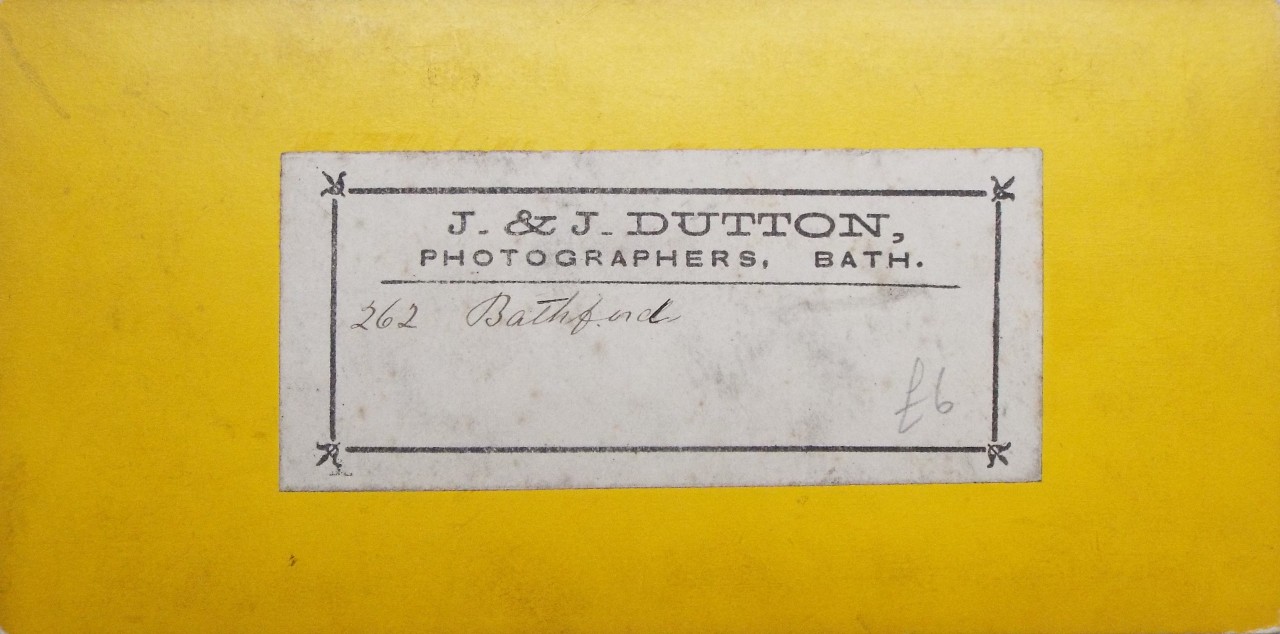 J. & J. DUTTON,
PHOTOGRAPHERS, BATH.
262 Bathford
£6